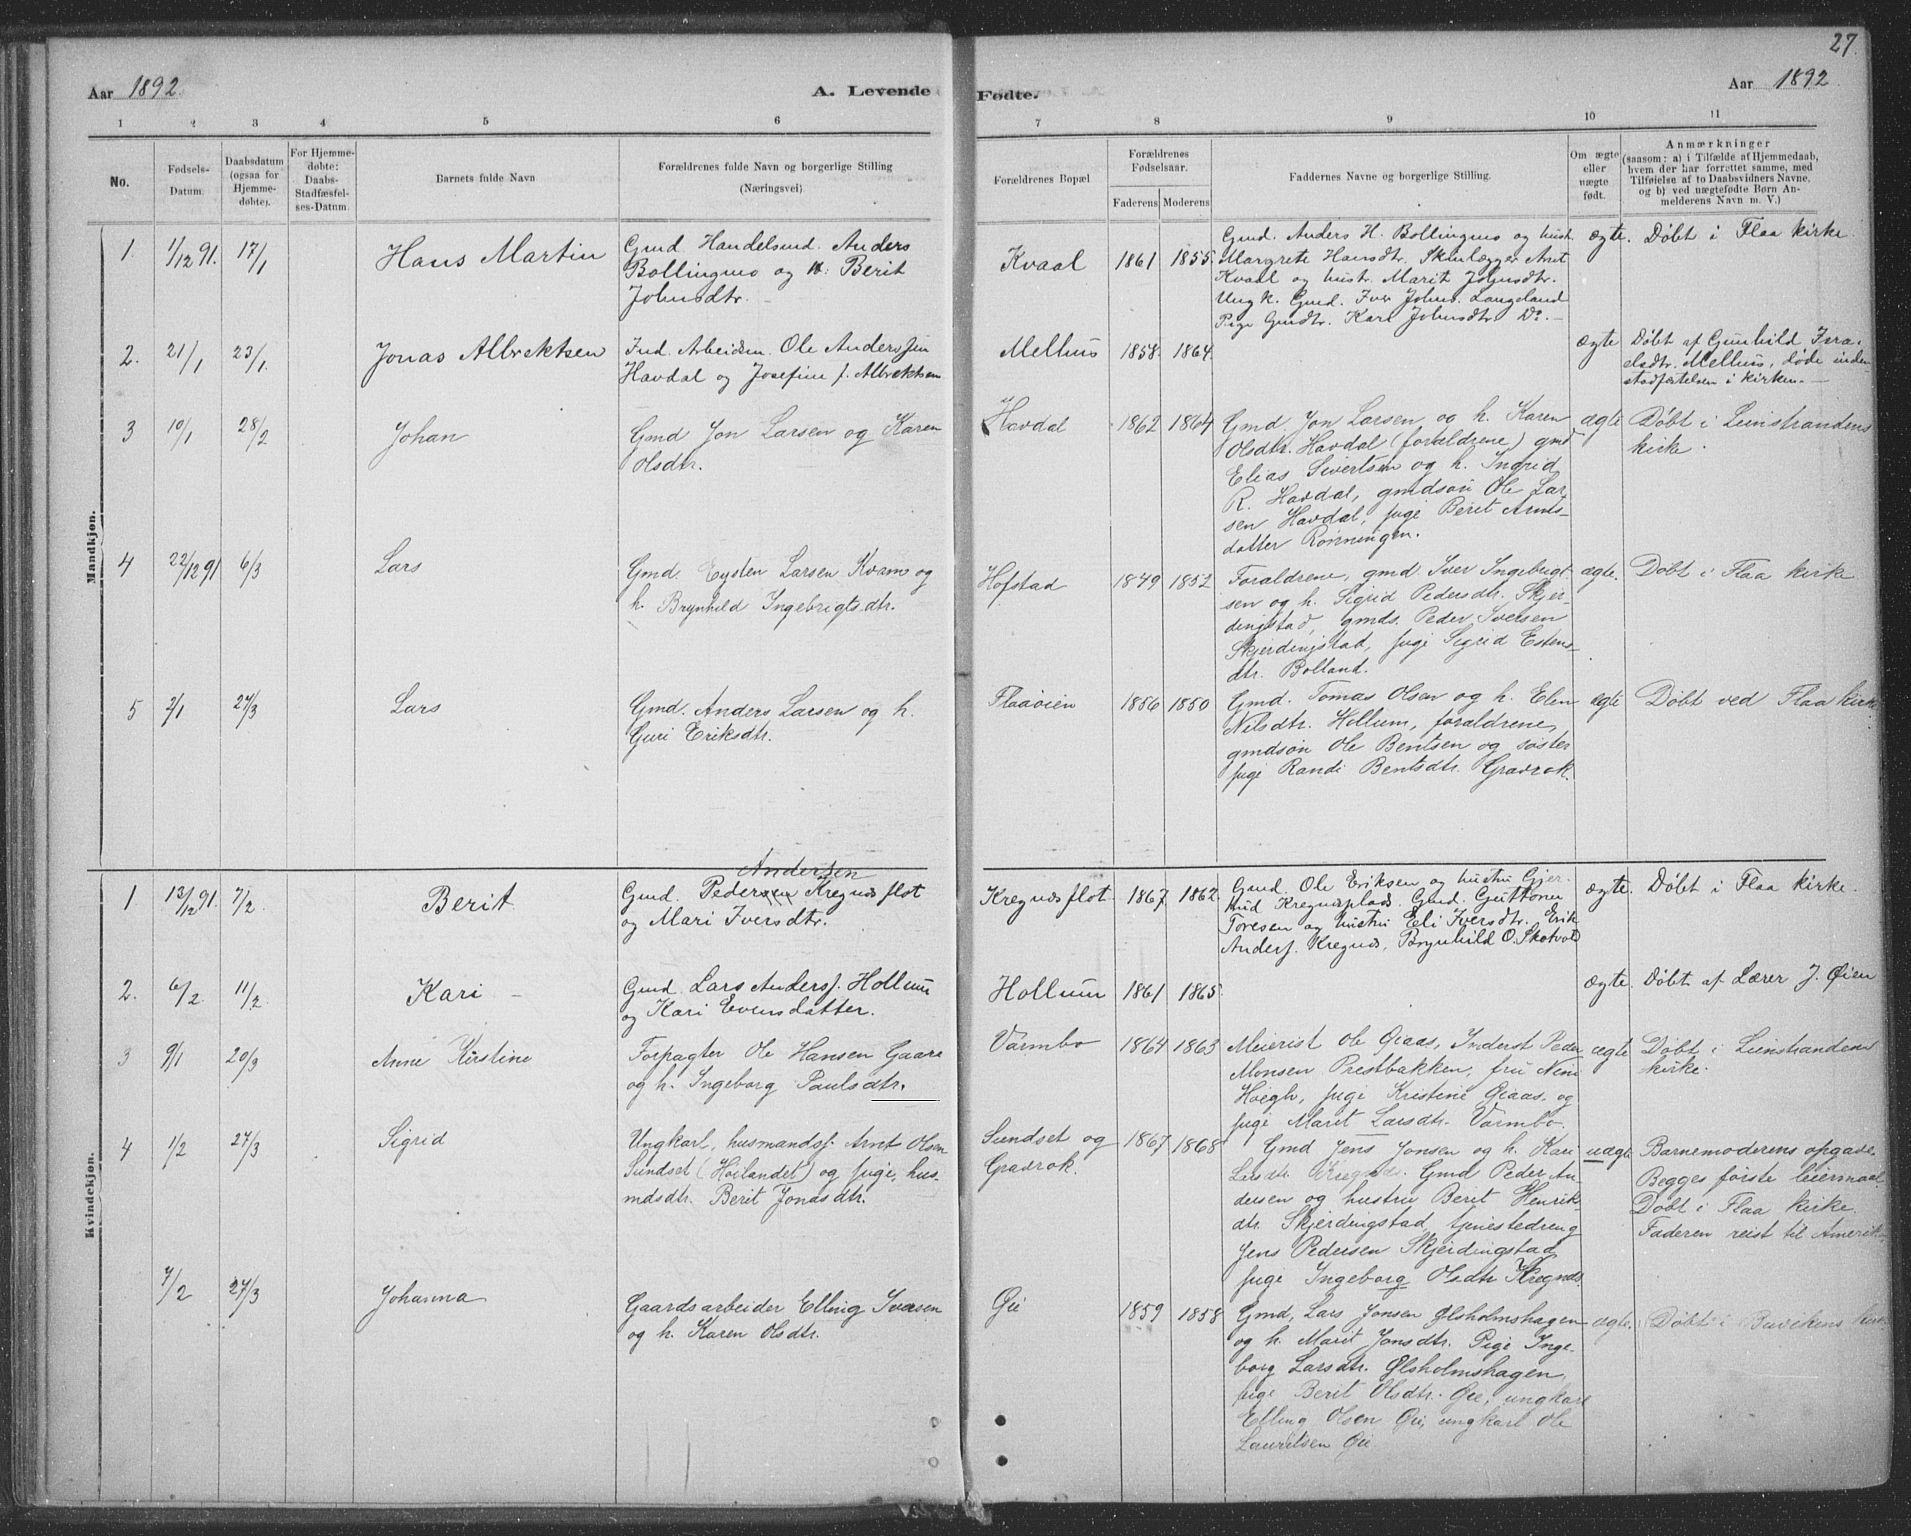 27.
Aar 1892.
A. Levende
Fødte.
Aar 1892.
1 2 3 4 5 6
7 8 9 10 11
No.
Fødsels-
Datum.
Daabsdatum
(ogsaa for
Hjemme-
døbte).
For Hjemme-
døbte:
Daabs-
Stadfæsfel-
ses-Datum.
Barnets fulde Navn
Forældrenes fulde Navn og borgerlige Stilling
(Næringsvei).
Forældrenes Bopæl
Forældrenes
Fødselsaar.
Faderens Moderens
Faddernes Navne og borgerlige Stilling.
Om ægte
eller
uægte
født.
Anmærkninger
(saasom: a) i Tilfælde af Hjemmedaab,
hvem der har forrettet samme, med
Tilføielse af to Daabsvidners Navne,
og b) ved uægtefødte Børn An-
melderens Navn m. V.)
Mandkjøn.
1. 1/12 91. 17/1 Hans Martin
Gmd Handelsmd. Anders
Bollingmo og H: Berit
Johnsdtr.
Kvaal 1861 1855.
Gmd. Anders H. Bollingmo og hust.
Margrete Hansdtr. Skinlægger Arnt
Kvaal og hustr. Marit Johnsdtr.
Ungk. Gmd. Iver Johns. Langeland
Pige Gmdtr. Kari Johnsdtr. Do. -
ægte. Døbt i Flaa Kirke.
2. 21/1 23/1. Jonas Albrektsen
Ind. Arbeidsm. Ole Anderssen
Havdal og Josefine f. Albrektsen
Melhus 1858. 1864.
ægte Døbt af Gunhild Isra-
elsdtr. Melhus, døde inden
stadfæstelsen i kirken. -
3 10/1 28/2 Johan
Gmd Jon Larsen og Karen
Olsdtr.
Havdal 1862 1864
Gmd. Jon Larsen og h. Karen
Olsdtr. Havdal (forældrene) gmd
Elias Sivertsen og h. Ingrid
R. Havdal, gmdsøn Ole Lar-
sen Havdal, pige Berit Arnts-
datter Rønningen.
ægte Døbt i Leinstrandens
kirke.
4 22/12 91 6/3 Lars
Gmd. Eysten Larsen Kvam og
h. Brynhild Ingebrigtsdtr.
Hofstad 1849 1852
Forældrene, gmd. Iver Ingebrigt-
sen og h. Sigrid Pedersdtr. Skjer-
dingstad, gmds. Peder Iversen
Skjerdingstad, pige Sigrid Estens-
dtr. Bolland.
ægte. Døbt i Flaa kirke
5 2/1 27/3 Lars
Gmd. Anders Larsen og h.
Guri Eriksdtr.
Flaaøien 1856 1850
Gmd. Tomas Olsen og h. Elen
Nilsdtr. Hollum, forældrene,
gmdsøn Ole Bentsen og søster
pige Randi Bentsdtr. Gravrok.
ægte Døbt ved Flaa kirke
Kvindekjøn.
1 13/12 91. 7/2. Berit
Andersen
Gmd. Pedersen Kregnesflot
og Mari Iversdtr.
Kregnesflot. 1867 1862.
Gmd. Ole Eriksen og hustru Gjer-
trud Kregnesplads. Gmd. Guttorm
Toresen og hustru Eli Iversdtr. Erik
Anders. Kregnes, Brynhild O. Skotvol
ægte. Døbt i Flaa kirke.
2. 6/2 11/2. Kari -
Gmd. Lars Anders. Hollum
og Kari Evensdatter.
Hollum 1861 1865.
ægte. Døbt af Lærer J. Øien
3 9/1 20/3 Anne Kirstine
Forpagter Ole Hansen Gaare
og h. Ingeborg Paulsdtr.
Varmbo 1864 1863
Meierist Ole Graas, Inderst Peder
Monsen Prestbakken, fru Nini
Høegh, pige Kristine Graas og
pige Maret Larsdtr. Varmbo.
ægte Døbt i Leinstrandens
kirke.
4 1/2 27/3 Sigrid
Ungkarl, husmandss. Arnt Olsen
Sundset (Høilandet) og pige, hus-
mdsdtr. Berit Jonasdtr.
Sundset og
Gravrok. 1867 1868
Gmd Jens Jonsen og h. Kari
Larsdtr. Kregnes. Gmd Peder An-
dersen og hustru Berit Henrik-
dtr. Skjerdingstad, tjenestedreng
Jens Pedersen Skjerdingstad,
pige Ingeborg Olsdtr Kregnes
uægte Barnemoderens opgave.
Begges første leiermaal.
Døbt i Flaa kirke.
Faderen reist til Amerik-
7/2 27/3 Johanna
Gaardsarbeider Elling Iversen
og h. Karen Olsdtr.
Øie 1859 1858
Gmd, Lars Jonsen Ølsholmshagen
og h. Marit Jonsdtr. Pige Inge-
borg Larsdtr. Ølsholmshagen,
pige Berit Olsdtr. Øie, ungkarl
Elling Olsen Øie, ungkarl Ole
Lauritsen Øie
ægte. Døbt i Buvikens kirke